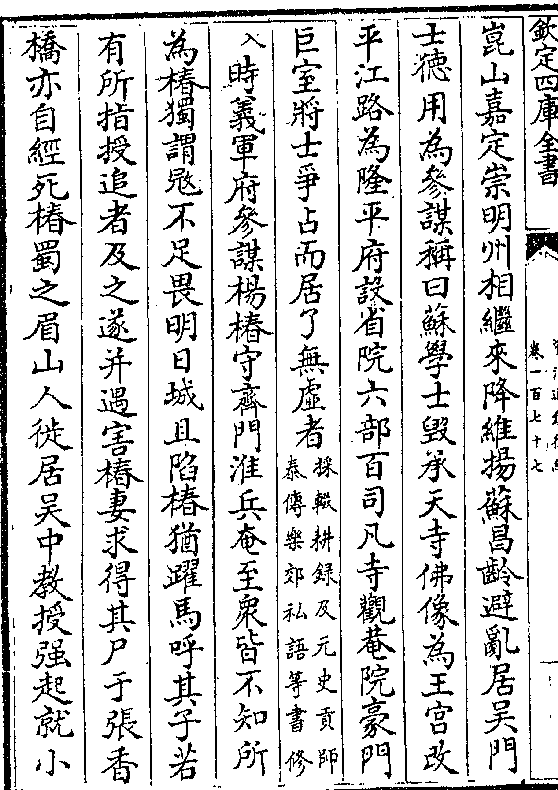 欽定四庫全書
卷一百七十七
崑山嘉定崇明州相繼來降維揚蘇昌齡避亂居吳門
士徳用為參謀稱曰蘇學士毀承天寺佛像為王宫改
平江路為隆平府設省院六部百司凡寺觀菴院豪門
巨室將士爭占而居了無虚者
採輟耕録及元史貢師
泰傳樂郊私語等書修
入
時義軍府參謀楊椿守齊門淮兵奄至衆皆不知所
為椿獨謂

不足畏明日城且陷椿猶躍馬呼其子若
有所指授追者及之遂并遇害椿妻求得其尸于張香
橋亦自經死椿蜀之眉山人徙居吳中教授强起就小